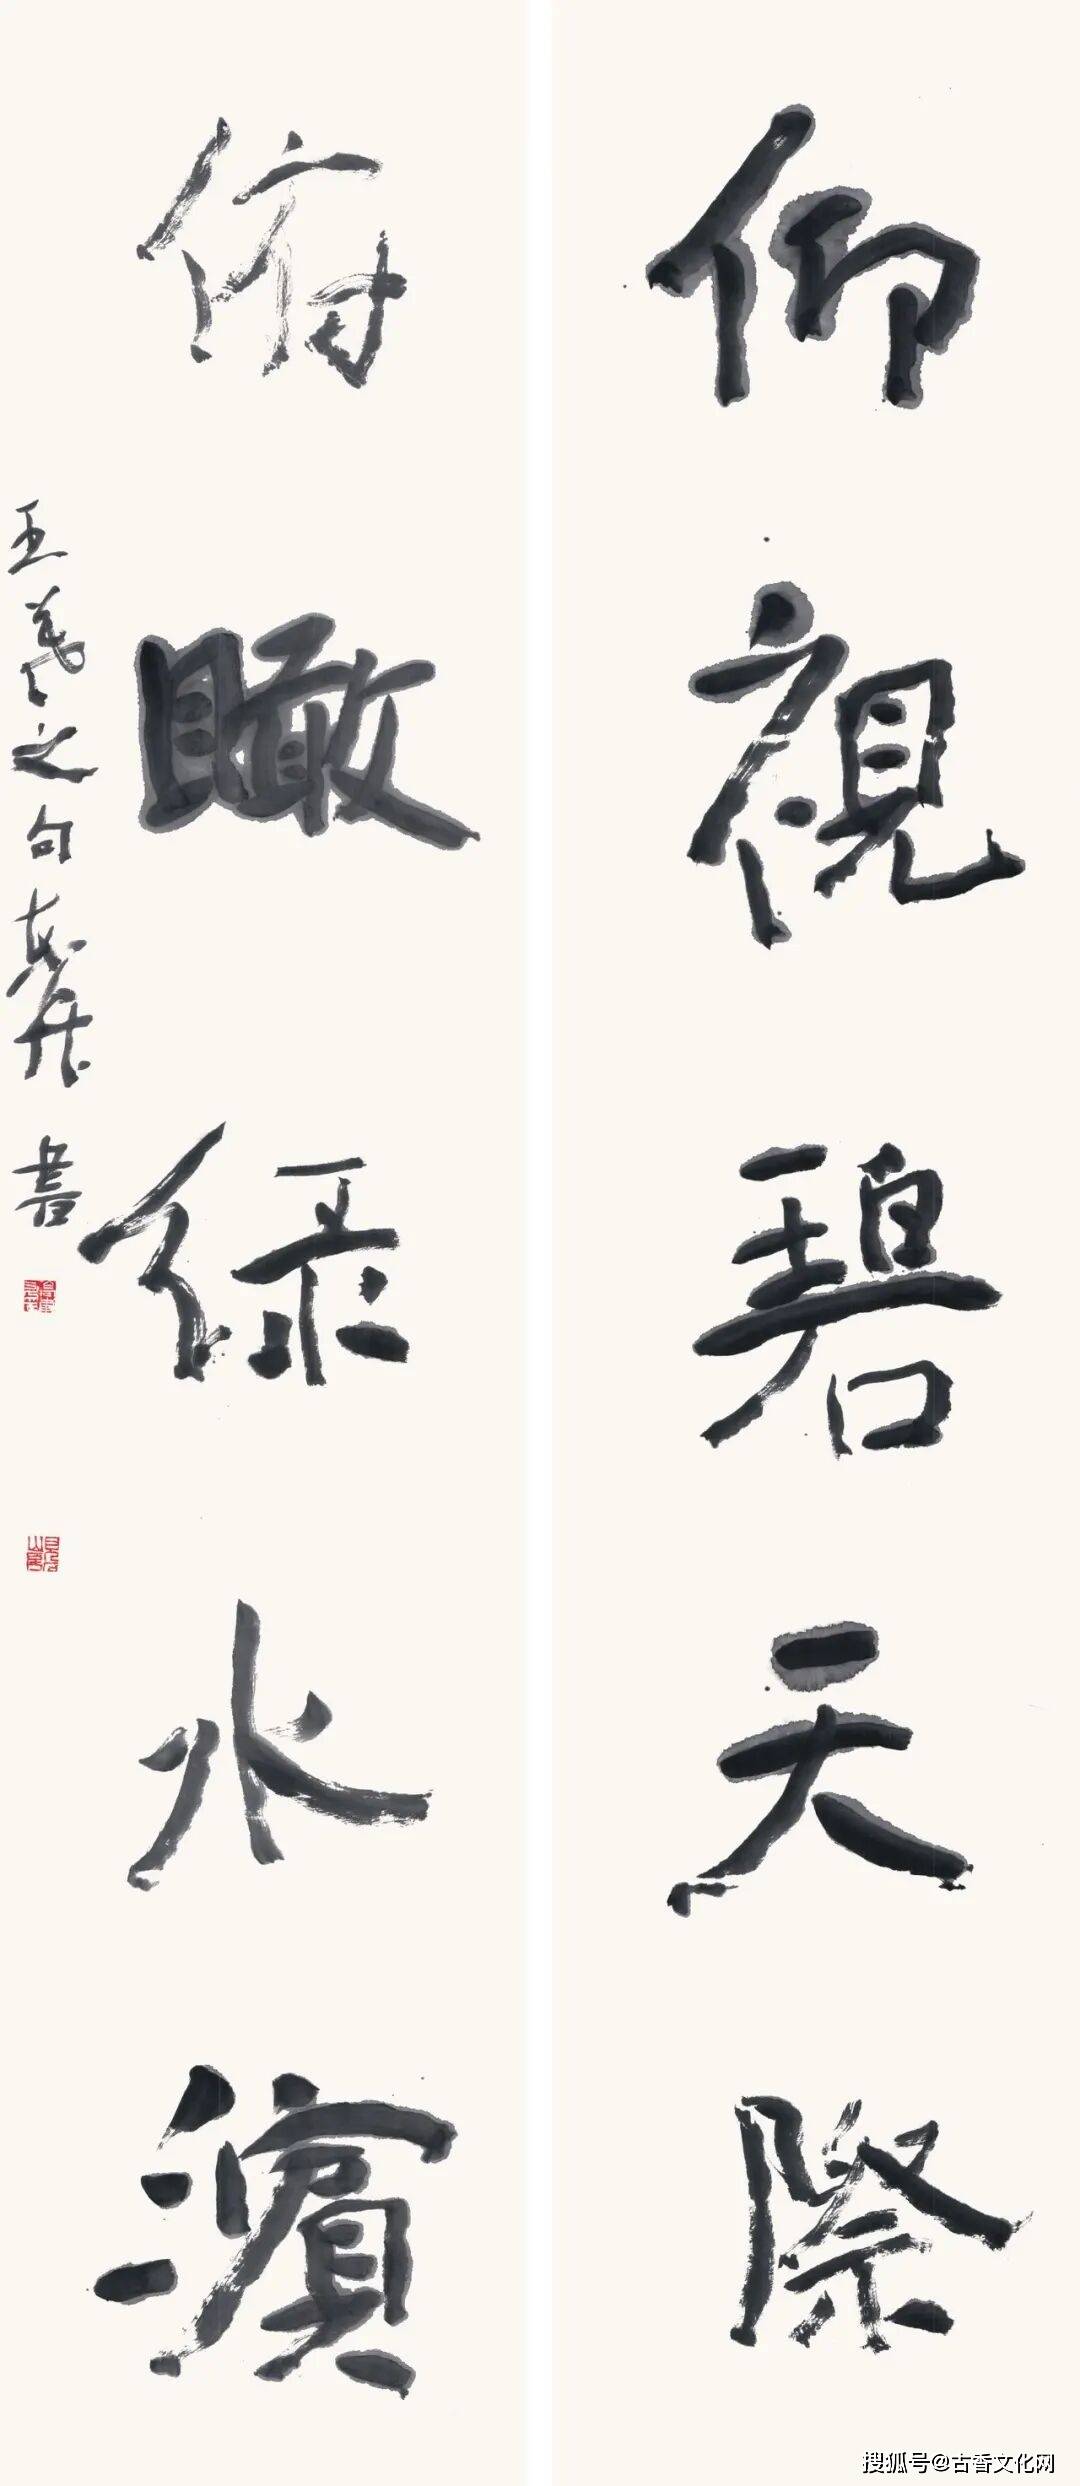 仰視碧天際
俯瞰绿水濱
王羲之句
書
搜狐号@古香文化网